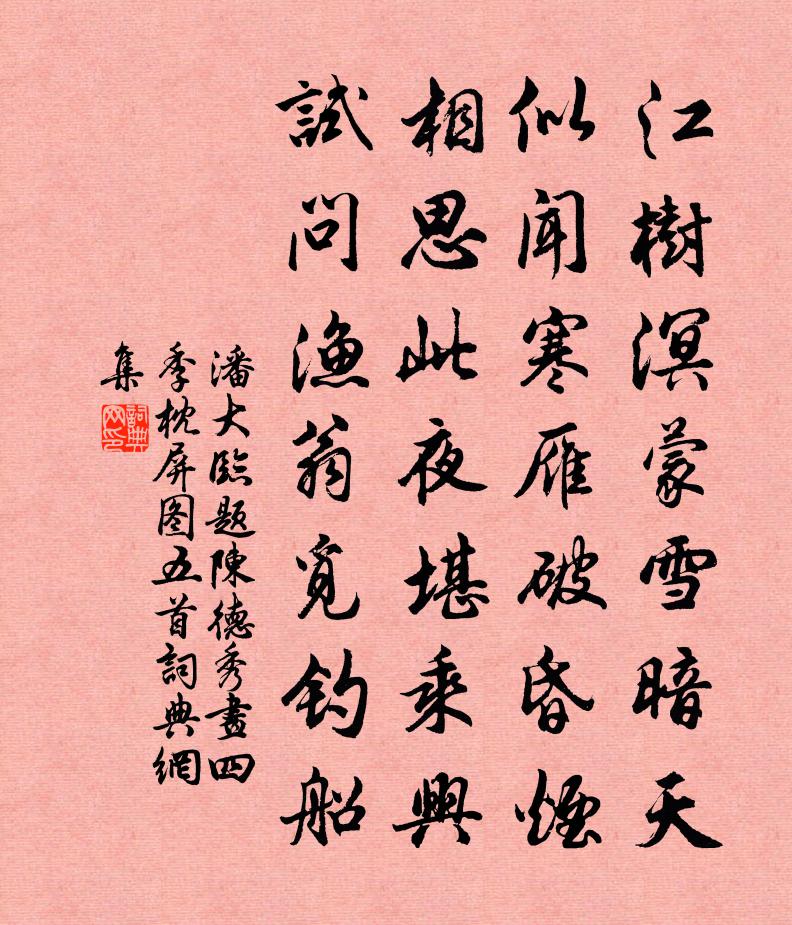 江樹溟蒙雪暗天
似聞寒雁破昏煙
相思此夜堪乘興
試問漁翁覓釣船
潘大臨題陳德秀畫四
季枕屏图五首詞典網
集
詞典网印